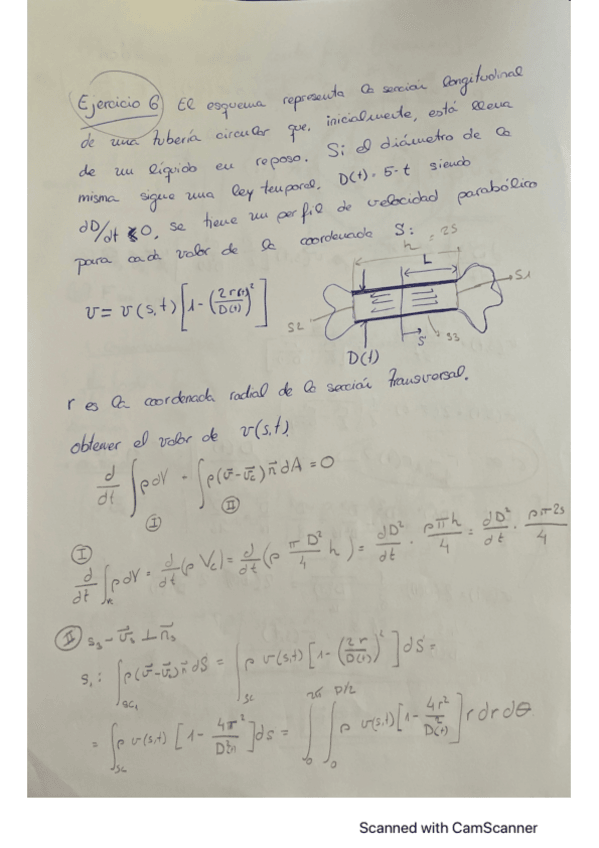 Ejercicio 6 El esquema representa la sección longitudinal
de una tubería circular que, inicialmente, está llena
de un líquido en reposo. Si el diámetro de la
misma sigue una ley temporal, D(t) = 5-t siendo
dD/dt < 0, se tiene un perfil de velocidad parabólico
para cada valor de la coordenada S:
h = 2S
L
S1
v = v(s,t) [1 - (2r(t)/D(t))²]
S2
S
S3
D(t)
r es la coordenada radial de la sección transversal.
obtener el valor de v(s,t)
d/dt ∫ρdV - ∫ρ(v⃗-v⃗c)n⃗dA = 0
I II
I
d/dt ∫ρdV = d/dt (ρ Vc) = d/dt (ρ π D²/4 h) = dD²/dt · ρπh/4 = dD²/dt · ρπ2s/4
II S3 - v⃗3 ⊥ n⃗3
S1: ∫SC1 ρ(v⃗-v⃗c)n⃗ dS = ∫SC ρ v(s,t) [1 - (2r/D(t))²] dS =
= ∫SC ρ v(s,t) [1 - 4r²/D²(t)] ds = ∫0 2π ∫0 D/2 ρ v(s,t) [1 - 4r²/D²(t)] r dr dθ
Scanned with CamScanner